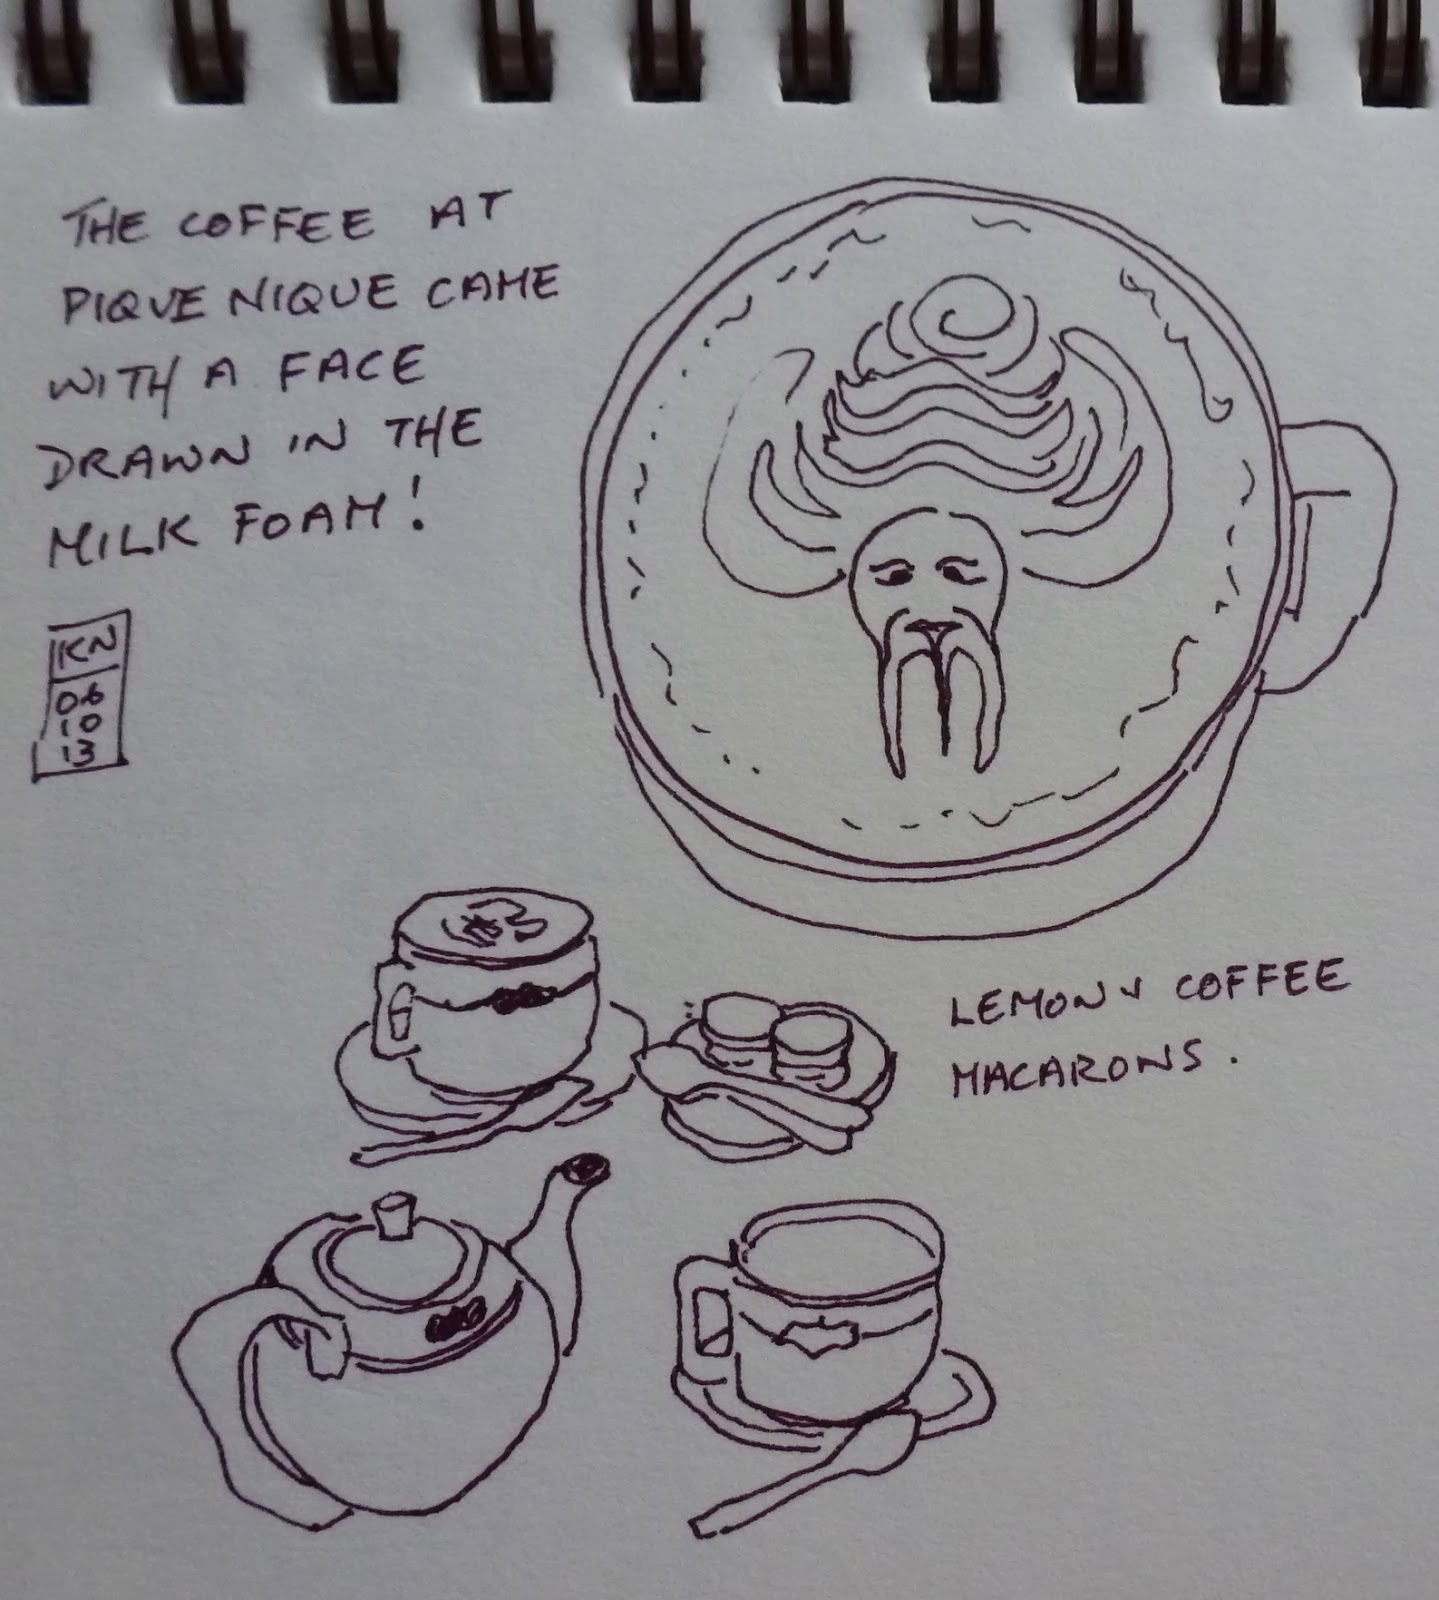 THE COFFEE AT
PIQUE NIQUE CAME
WITH A FACE
DRAWN IN THE
MILK FOAM!
KN
06
10
13
LEMON & COFFEE
MACARONS.